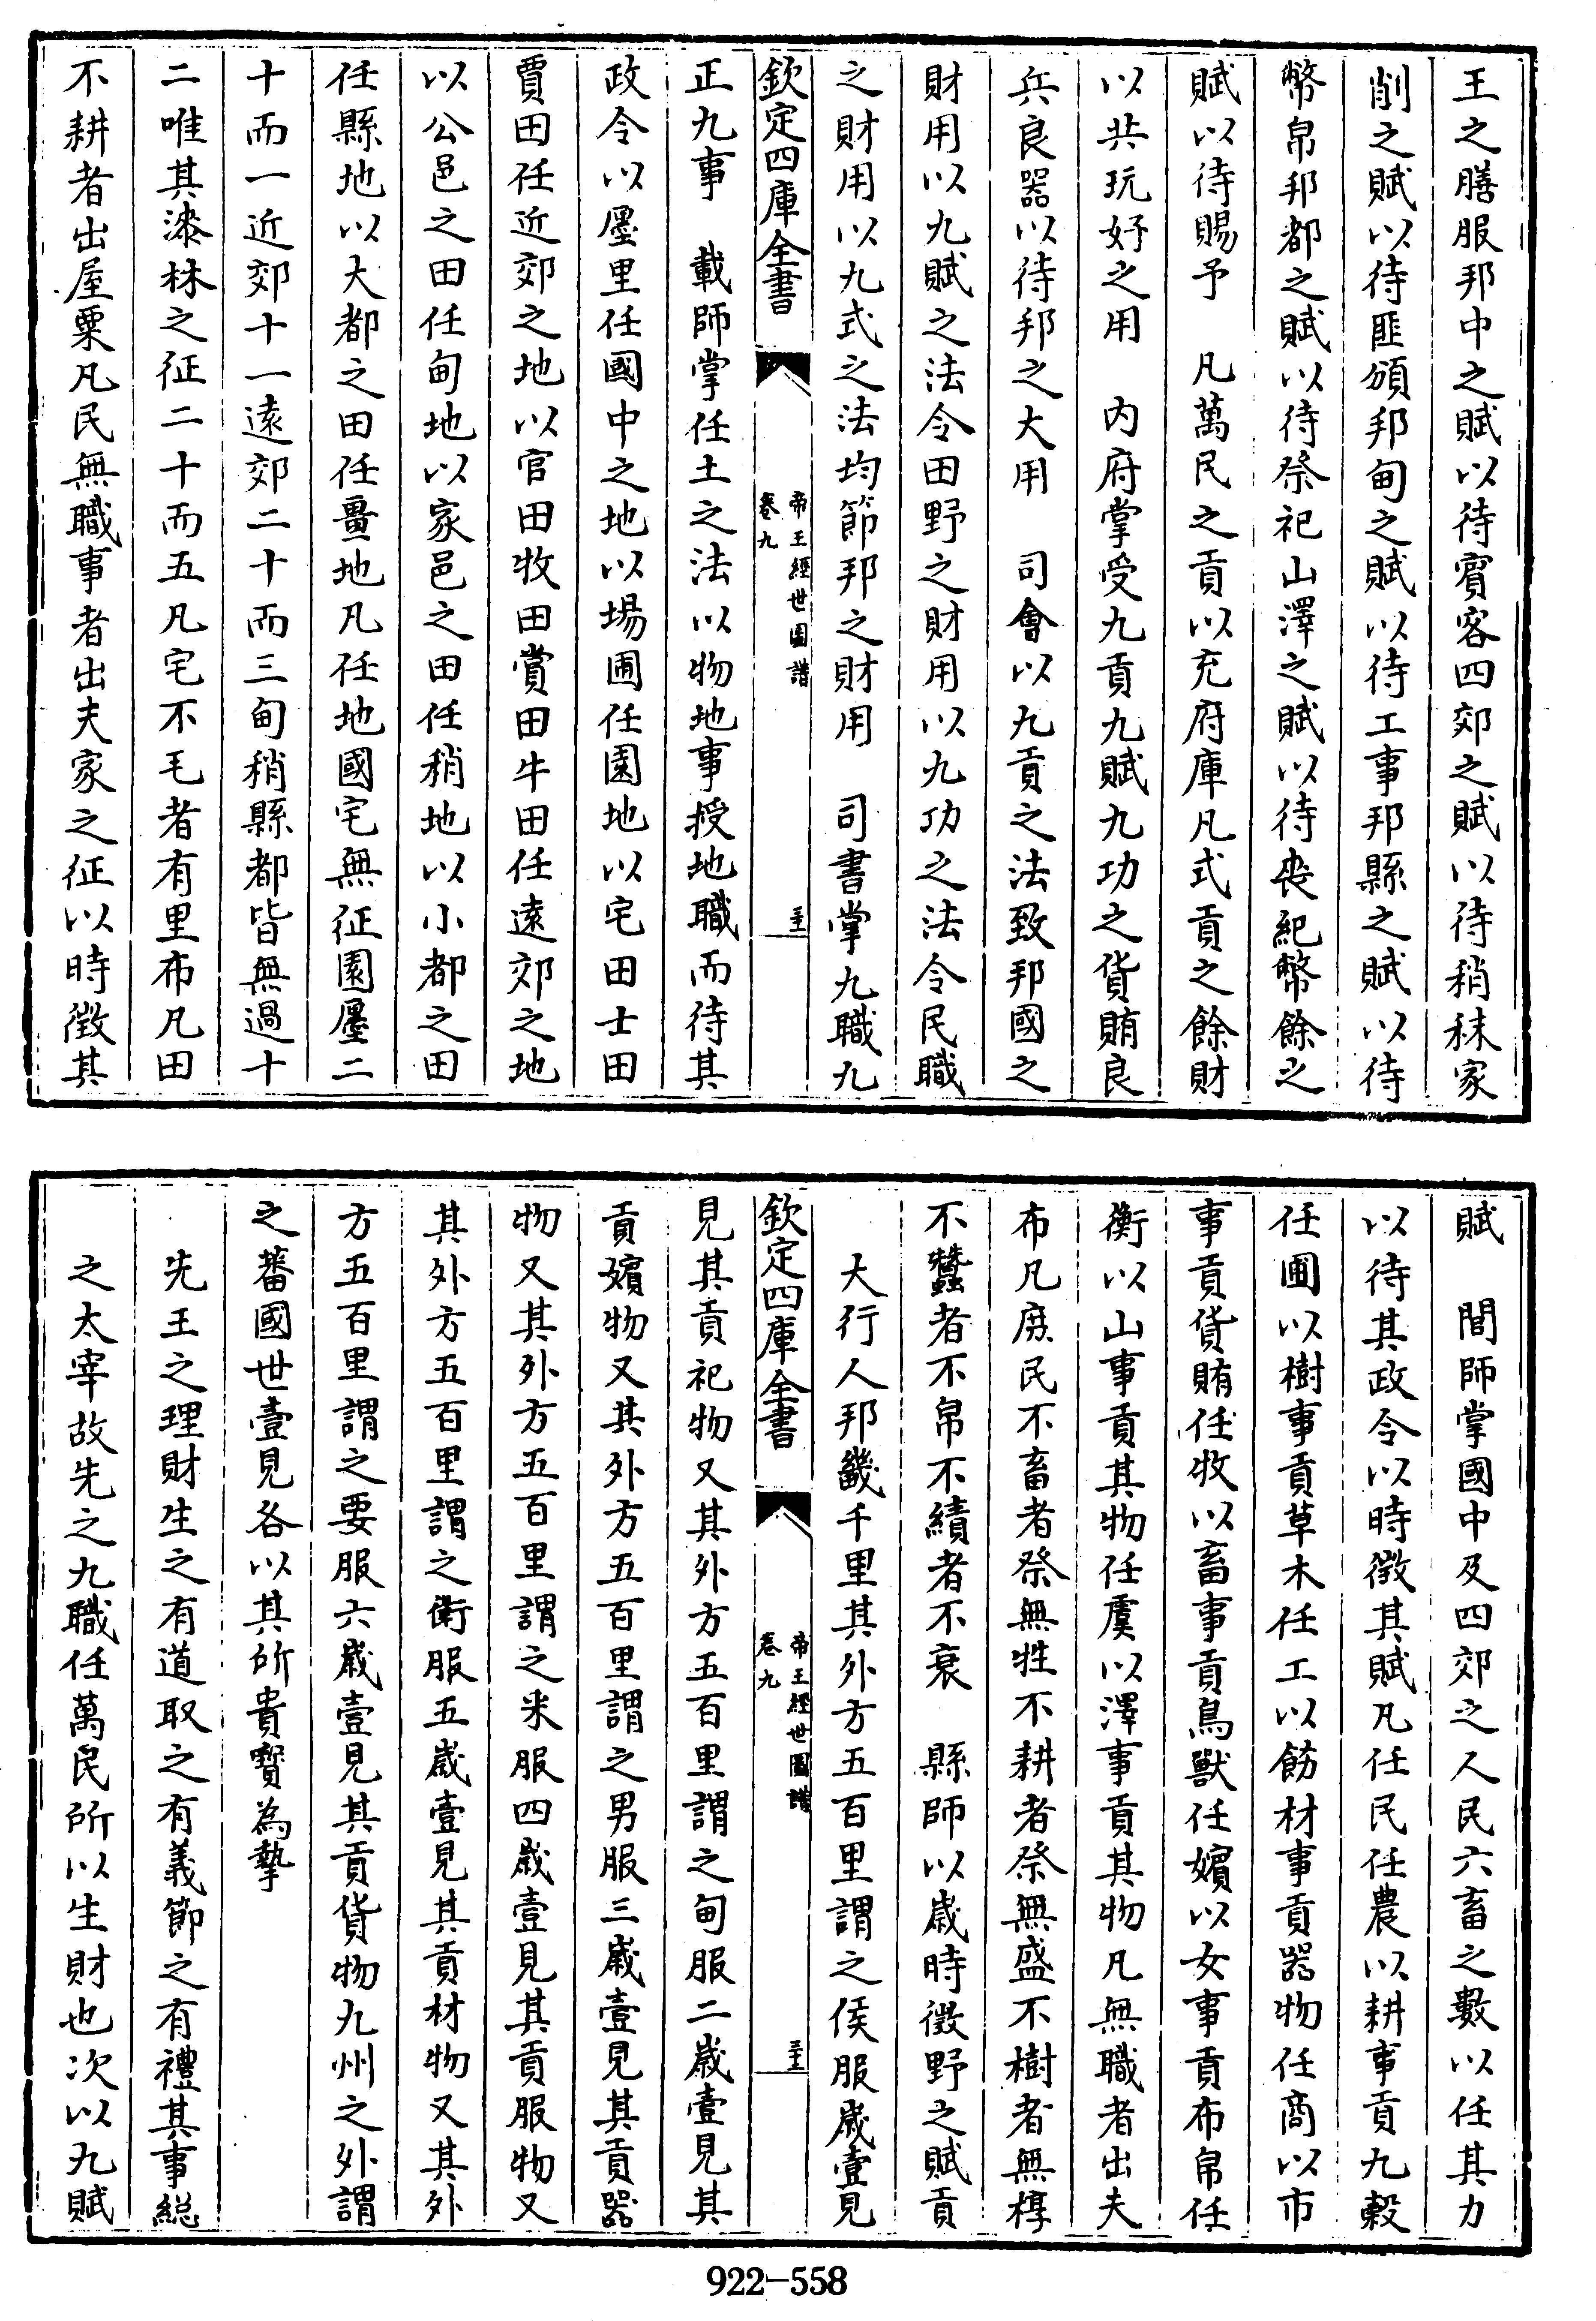 王之膳服邦中之賦以待賓客四郊之賦以待稍秣家
削之賦以待匪頒邦甸之賦以待工事邦縣之賦以待
幣帛邦都之賦以待祭祀山澤之賦以待喪紀幣餘之
賦以待賜予　凡萬民之貢以充府庫凡式貢之餘財
以共玩好之用　內府掌受九貢九賦九功之貨賄良
兵良器以待邦之大用　司會以九貢之法致邦國之
財用以九賦之法令田野之財用以九功之法令民職
之財用以九式之法均節邦之財用　司書掌九職九
欽定四庫全書
帝王經世圖譜
卷九
三十一
正九事　載師掌任土之法以物地事授地職而待其
政令以廛里任國中之地以場圃任園地以宅田士田
賈田任近郊之地以官田牧田賞田牛田任遠郊之地
以公邑之田任甸地以家邑之田任稍地以小都之田
任縣地以大都之田任畺地凡任地國宅無征園廛二
十而一近郊十一遠郊二十而三甸稍縣都皆無過十
二唯其漆林之征二十而五凡宅不毛者有里布凡田
不耕者出屋粟凡民無職事者出夫家之征以時徵其
賦　閭師掌國中及四郊之人民六畜之數以任其力
以待其政令以時徵其賦凡任民任農以耕事貢九穀
任圃以樹事貢草木任工以飭材事貢器物任商以市
事貢貨賄任牧以畜事貢鳥獸任嬪以女事貢布帛任
衡以山事貢其物任虞以澤事貢其物凡無職者出夫
布凡庶民不畜者祭無牲不耕者祭無盛不樹者無椁
不蠶者不帛不績者不衰　縣師以歲時徵野之賦貢
大行人邦畿千里其外方五百里謂之侯服歲壹見
欽定四庫全書
帝王經世圖譜
卷九
三十二
見其貢祀物又其外方五百里謂之甸服二歲壹見其
貢嬪物又其外方五百里謂之男服三歲壹見其貢器
物又其外方五百里謂之釆服四歲壹見其貢服物又
其外方五百里謂之衛服五歲壹見其貢材物又其外
方五百里謂之要服六歲壹見其貢貨物九州之外謂
之蕃國世壹見各以其所貴寶為摯
先王之理財生之有道取之有義節之有禮其事總
之太宰故先之九職任萬民所以生財也次以九賦
922-558